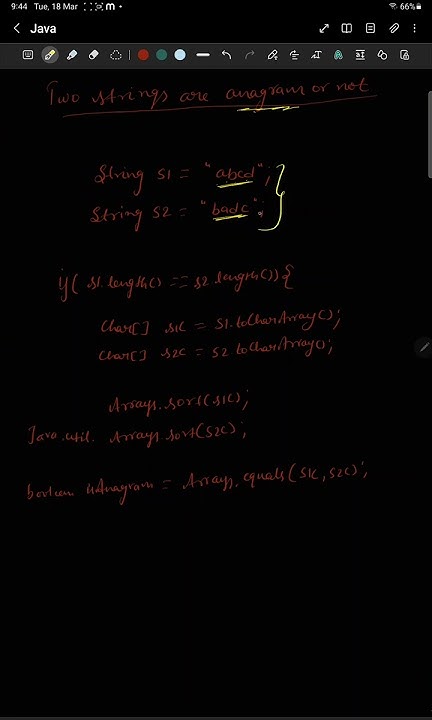 9:44 Tue, 18 Mar
66%
Java
Two strings are anagram or not
String s1 = "abcd";
String s2 = "badc";
if( s1.length() == s2.length()){
char[] s1c = s1.toCharArray();
char[] s2c = s2.toCharArray();
Arrays.sort(s1c);
Java.util. Arrays.sort(s2c);
boolean isAnagram = Arrays.equals(s1c, s2c);